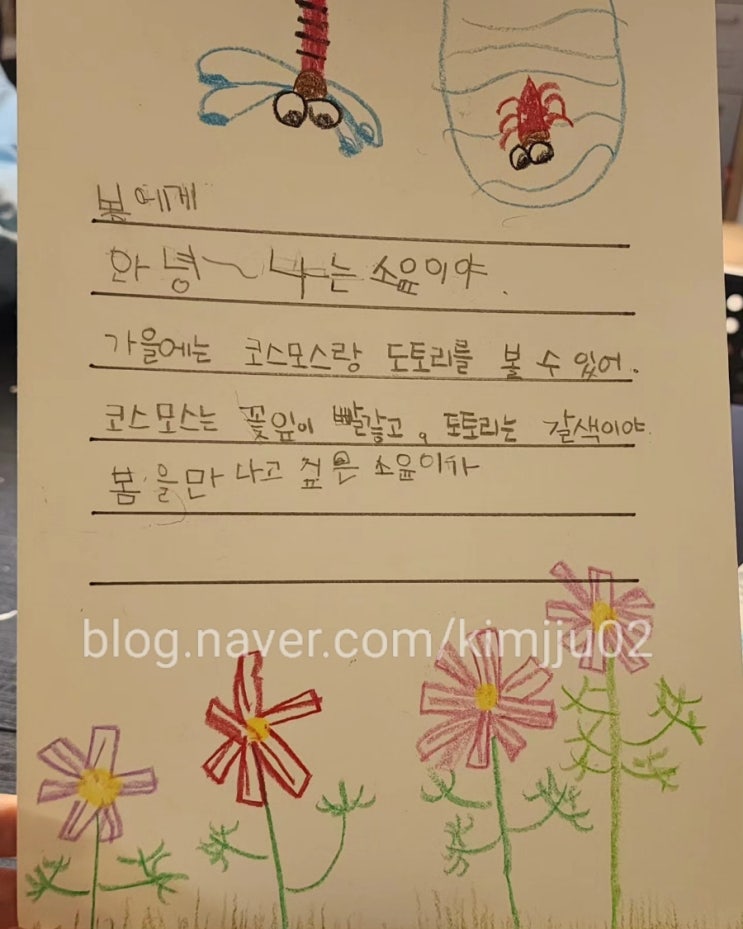 봄에게
안녕~ 나는 소윤이야.
가을에는 코스모스랑 도토리를 볼 수 있어.
코스모스는 꽃잎이 빨갛고, 도토리는 갈색이야.
봄을만 나고 싶은 소윤이가
blog.naver.com/kimjju02